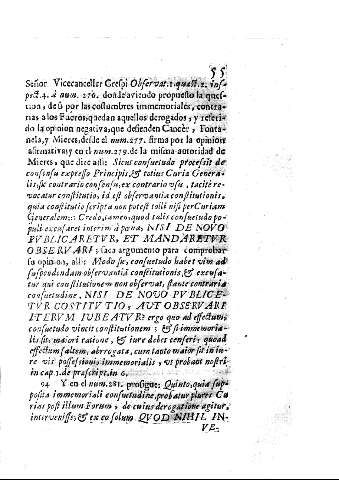 55
Señor Vicecanceller Crespi Observat. 1. quæst. 2. ins-
pect. 4. à num. 276. donde avitudo propuesto la ques-
tion, de ū por las costumbres immemoriales, contra-
rias a los Fueros, quedan aquellos derogados, y referi-
do la opinion negativa, que defienden Cancèr, Fonta-
nela, y Mieres, desde el num. 277. firma por la opinion
afirmativa; y en el num. 279. de la misma autoridad de
Mieres, que dize alli: Sicut consuetudo processit de
consensu expresso Principis, & totius Curiæ Genera-
lis, sic contrario consensu, ex contrario vsu, tacitè re-
vocatur constitutio, id est observatio constitutionis,
quia constitutio scripta non potest tolli nisi per Curiam
Generalem:: Credo, tamen, quod talis consuetudo po-
puli excusaret interim à pœna, NISI DE NOVO
PVBLICARETVR, ET MANDARETVR
OBSERVARI; saca argumento para comprobar
su opinion, alli: Modo sic, consuetudo habet vim ad
suspendendam observantiā constitutionis, & excusa-
tur qui constitutionem non observat, stante contraria
consuetudine, NISI DE NOVO PVBLICE-
TVR CONSTITVTIO, AVT OBSERVARI
ITERVM IVBEATVR: ergo quo ad effectum,
consuetudo vincit constitutionem; & si immemoria-
lis sit, maiori ratione, & iure debet censeri, quoad
effectum saltem, abrrogata, cum tanto maior sit in iu-
re vis possessionis immemorialis, vt probant nostri
in cap. 1. de præscript. in 6.
94 Y en el num. 281. prosigue: Quinto, quia sup-
posita immemoriali consuetudine, probatur plures Cu
rias post illum Forum, de cuius derogatione agitur,
intervenisse, & ex eo solum QVOD NIHIL IN-
VE-